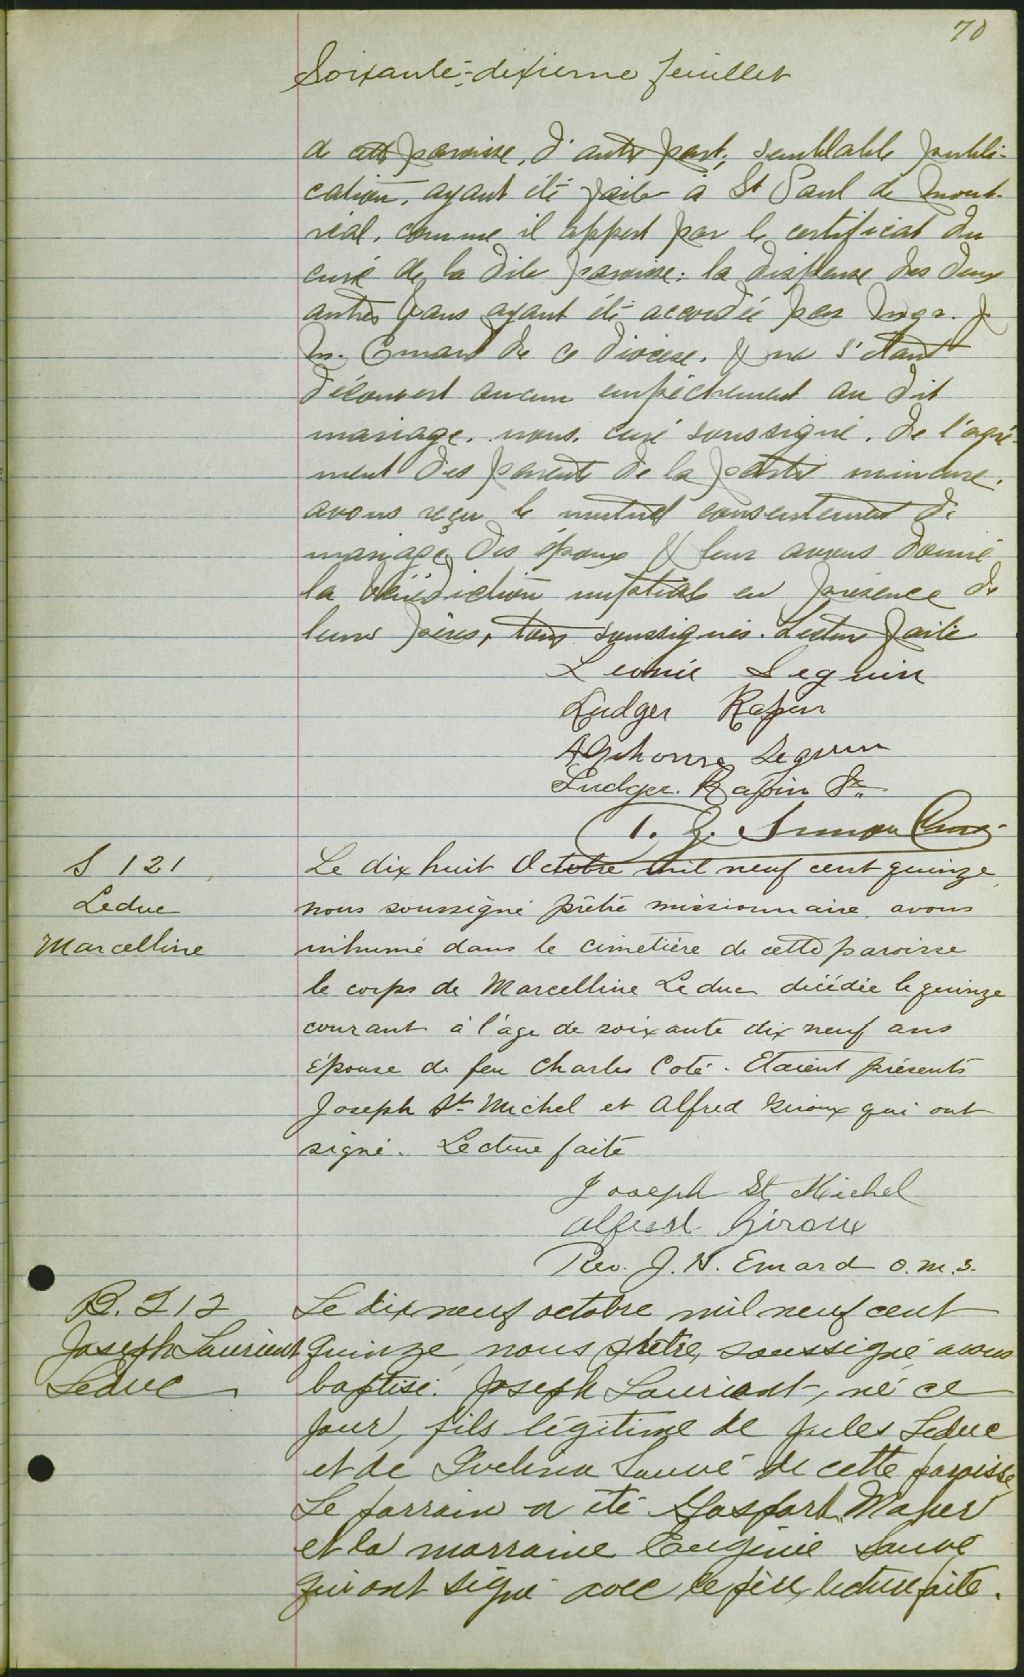 70
Soixante-dixième feuillet
de cette paroisse, d'autre part; semblable publi-
cation, ayant été faite à St Paul de Mont-
réal, comme il appert par le certificat du
curé de la dite paroisse: la dispense des deux
autres bans ayant été accordée par Mgr. J
M. Emard de ce diocèse, & ne s'étant
découvert aucun empêchement au dit
mariage, nous, curé soussigné, de l'agré-
ment des parents de la partie mineure,
avons reçu le mutuel consentement de
mariage des époux & leur avons donné
la bénédiction nuptiale en présence de
leurs pères, tous soussignés. Lecture faite
Leonie Seguin
Ludger Rapin
Alphonse Seguin
Ludger Rapin Sr.
S 121
Leduc
Marcelline
Le dix huit Octobre mil neuf cent quinze,
nous soussigné prêtre missionnaire, avons
inhumé dans le cimetière de cette paroisse
le corps de Marcelline Leduc décédée le quinze
courant à l'age de soixante dix neuf ans
épouse de feu Charles Coté. Etaient présents
Joseph St Michel et Alfred Giroux qui ont
signé. Lecture faite
Joseph St Michel
Alfred Giroux
Rev. J. N. Emard o.m.s.
B. 212
Joseph Laurient
Leduc
Le dix neuf octobre mil neuf cent
quinze, nous prêtre, soussigné, avons
baptisé. Joseph Lauriant, né ce
jour, fils légitime de Jules Leduc
et de Evelina Sauvé de cette paroisse,
Le parrain a été Gaspard Maher
et la marraine Eugénie Sauvé
qui ont signé avec le père, lecture faite.